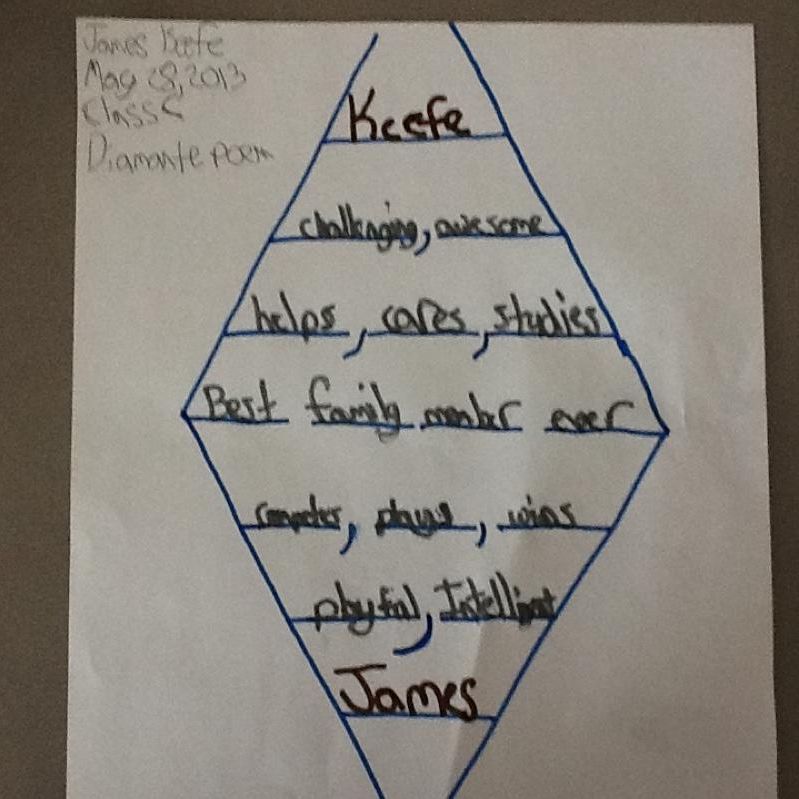 James Keefe
May 28, 2013
Class C
Diamante poem
Keefe
challenging, awesome
helps, cares, studies
Best family member ever
computer, plays, wins
playful, Intelligent
James